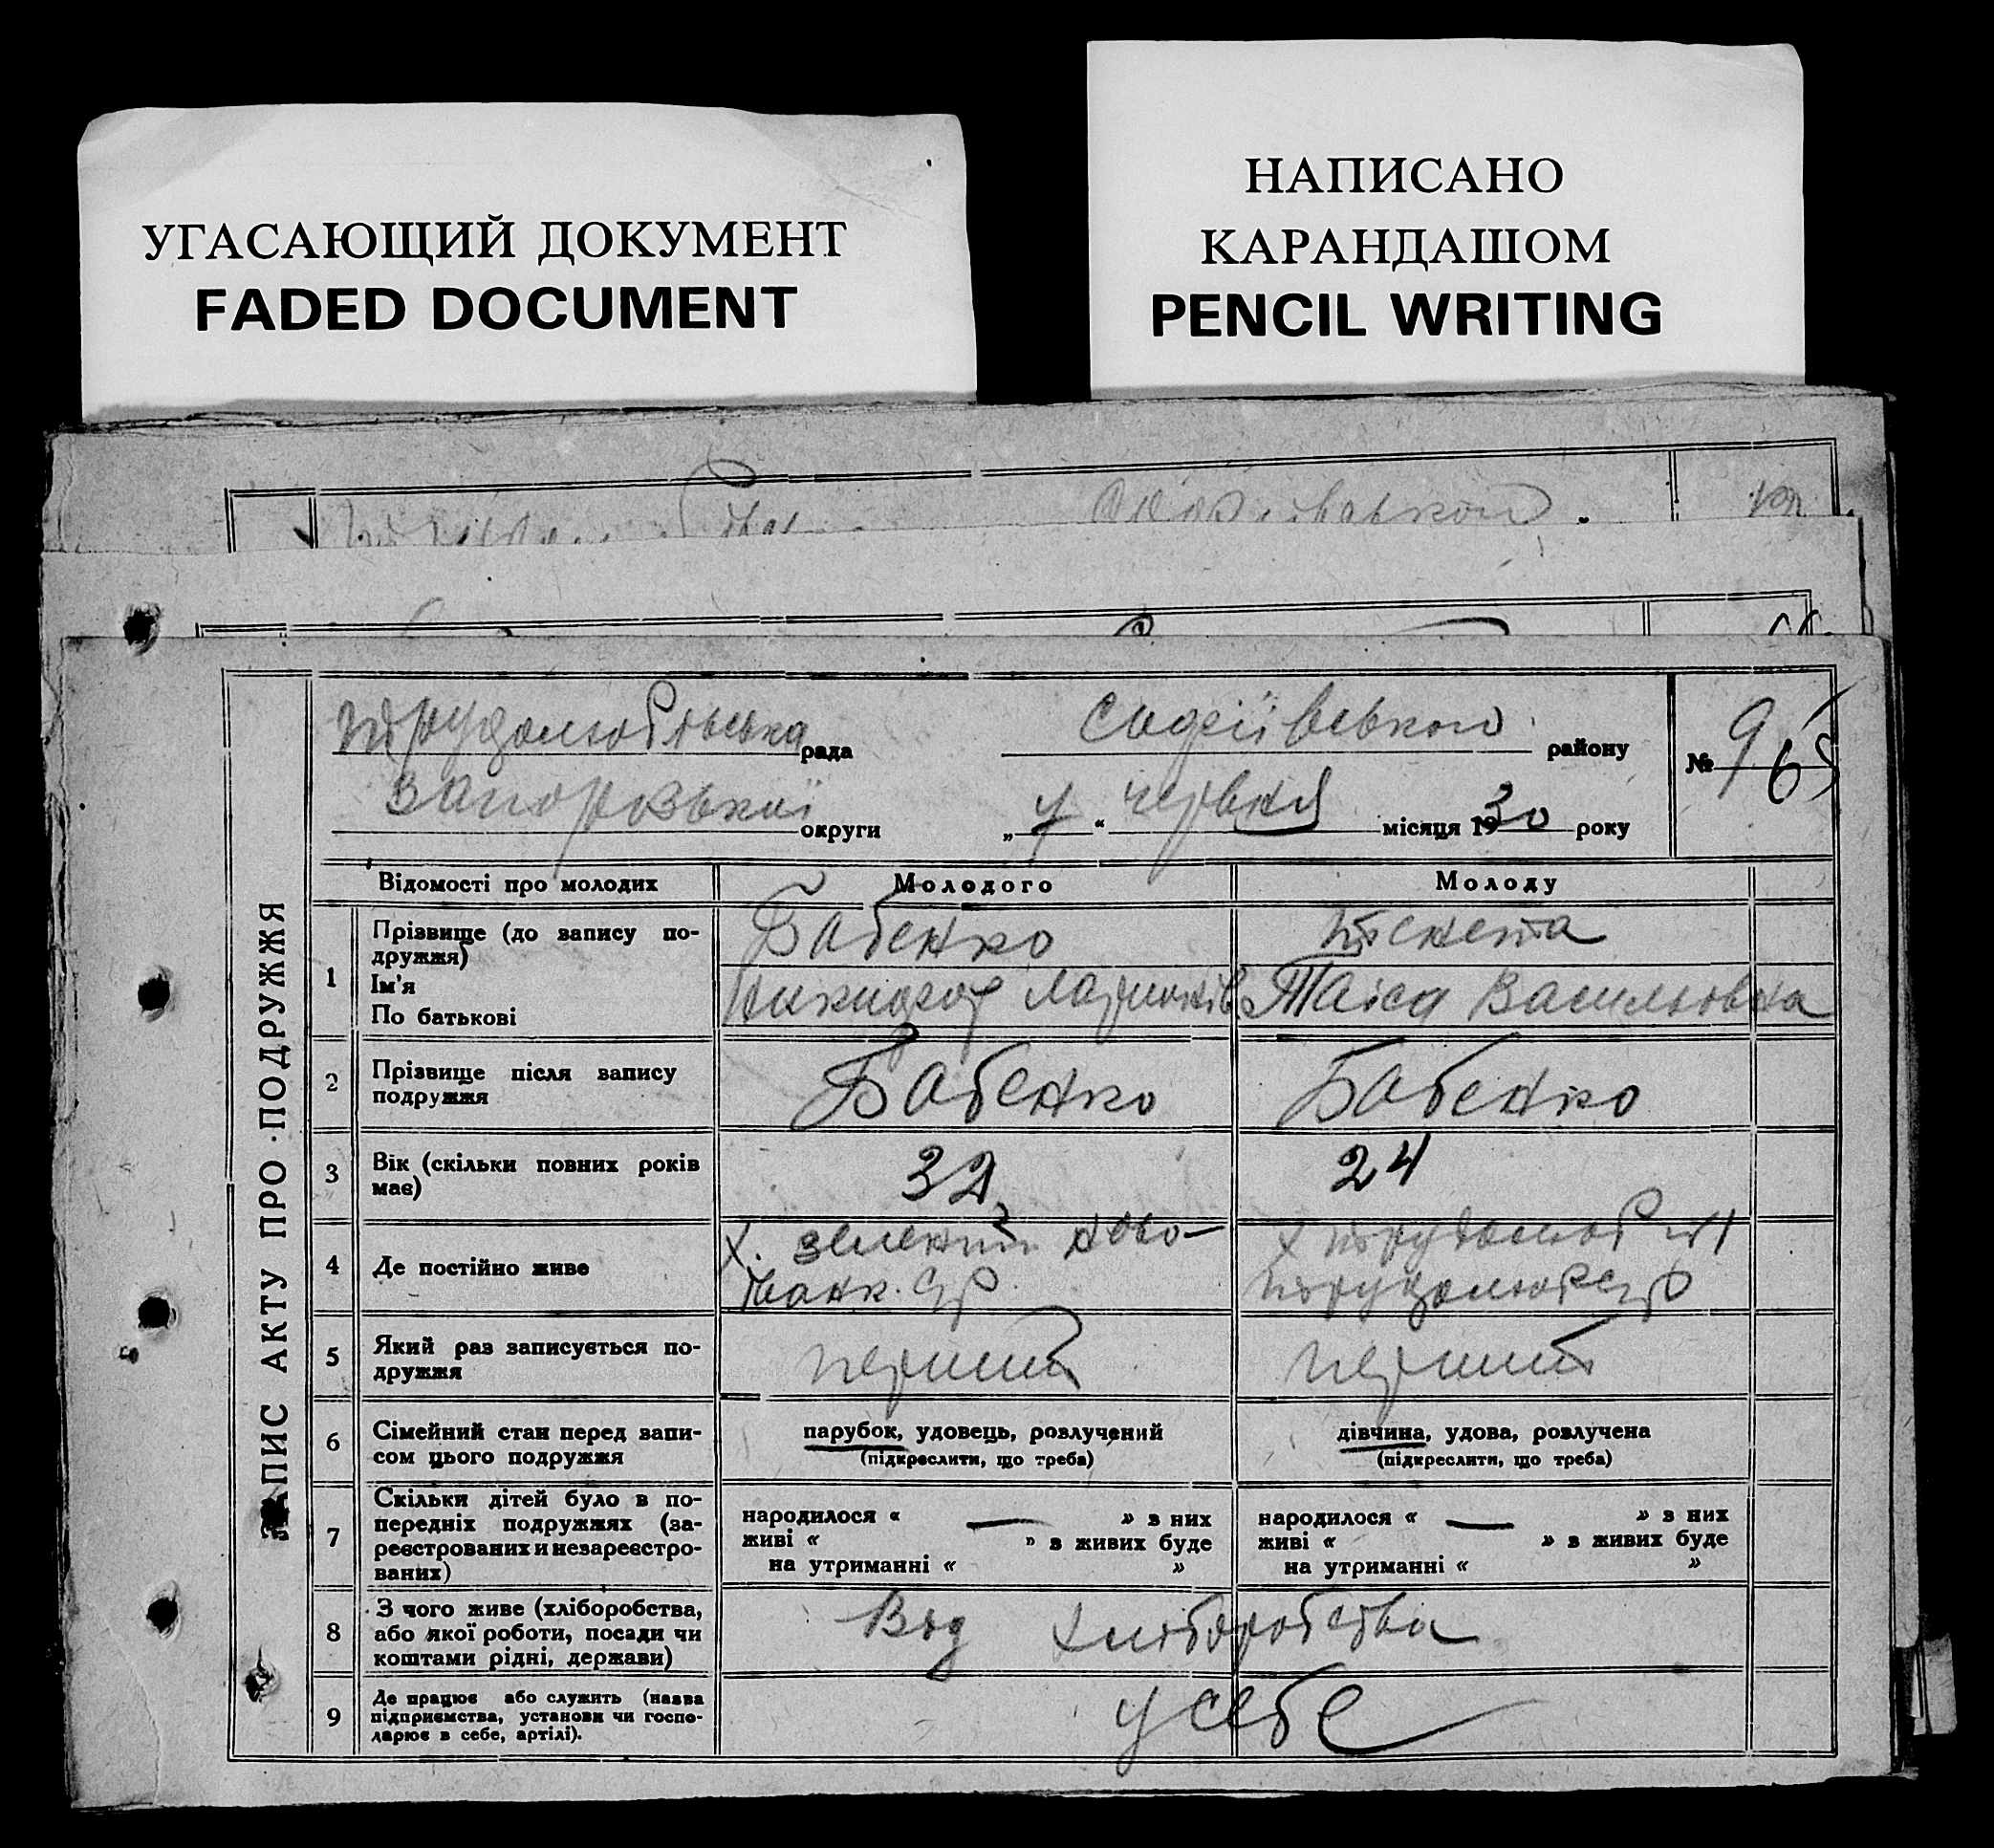 УГАСАЮЩИЙ ДОКУМЕНТ
FADED DOCUMENT
НАПИСАНО
КАРАНДАШОМ
PENCIL WRITING
ЗАПИС АКТУ ПРО ПОДРУЖЖЯ
Трудолюбівська рада Софіївського району № 9 65
Запорозької округи „ 4 “ червня місяця 1930 року
Відомості про молодих Молодого Молоду
1 Прізвище (до запису по-
дружжя) Бабенко
Ім'я
По батькові Никифор Таїса Васильовна
2 Прізвище після запису
подружжя Бабенко Бабенко
3 Вік (скільки повних років
має) 32 24
4 Де постійно живе х. Зелений Ново-
х Трудолюб
5 Який раз записується по-
дружжя перший перший
6 Сімейний стан перед запи-
сом цього подружжя парубок, удовець, розлучений дівчина, удова, розлучена
(підкреслити, що треба) (підкреслити, що треба)
7 Скільки дітей було в по-
передніх подружжях (за-
реєстрованих и незареєстро-
ваних)
народилося « — » з них народилося « — » з них
живі « » в живих буде живі « » в живих буде
на утриманні « » на утриманні « »
8 З чого живе (хліборобства,
або якої роботи, посади чи
коштами рідні, держави) Від хліборобства
9 Де працює або служить (назва
підприємства, установи чи госпо-
дарює в себе, артілі). у себе